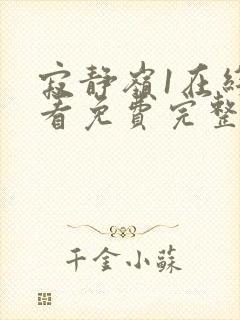 寂静嶺1在線
看免費完整
千金小蘇